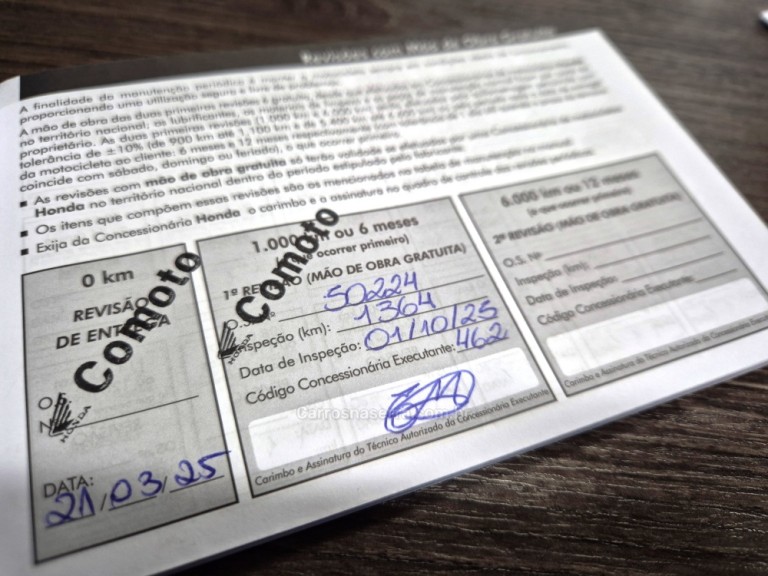 Revisões com Mão de Obra Gratuita
A finalidade da manutenção periódica é manter a
proporcionando uma utilização segura e livre de
A mão de obra das duas primeiras revisões é gratuita, desde
no território nacional; os lubrificantes, os materiais de
proprietário. As duas primeiras revisões (1.000 km e 6.000 km
tolerância de ±10% (de 900 km até 1.100 km e de
da motocicleta ao cliente: 6 meses e 12 meses respectivamente
coincide com sábado, domingo ou feriado), o que ocorrer primeiro.
■ As revisões com mão de obra gratuita só terão validade se efetuadas
Honda no território nacional dentro do período estipulado pelo fabricante.
■ Os itens que compõem essas revisões são os mencionados na tabela de manutenção
■ Exija da Concessionária Honda o carimbo e a assinatura no quadro de controle
0 km
REVISÃO
DE ENTREGA
Comoto
HONDA
DATA:
21/03/25
1.000 km ou 6 meses
(o que ocorrer primeiro)
1ª REVISÃO (MÃO DE OBRA GRATUITA)
Comoto
HONDA
O.S. Nº 50224
Inspeção (km): 1364
Data de Inspeção: 01/10/25
Código Concessionária Executante: 462
Carimbo e Assinatura do Técnico Autorizado da Concessionária Executante
6.000 km ou 12 meses
(o que ocorrer primeiro)
2ª REVISÃO (MÃO DE OBRA GRATUITA)
O.S. Nº
Inspeção (km):
Data de Inspeção:
Código Concessionária Executante:
Carimbo e Assinatura do Técnico Autorizado da Concessionária Executante